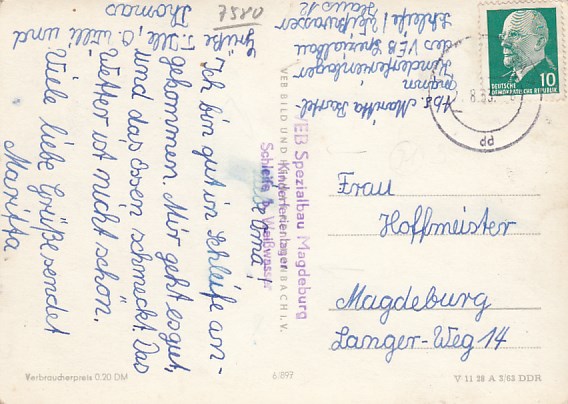 7580
Liebe Oma!
Ich bin gut in Schleife an-
gekommen. Mir geht es gut,
und das Essen schmeckt. Das
Wetter ist nicht schön.
Viele liebe Grüße sendet
Maritta
Grüße T. Illi, O. Willi und
Thomas
Abs. Maritta
Kinderferienlager
des VEB Spezialbau
Schleife / Weißwasser
Haus 12
VEB Spezialbau Magdeburg
Kinderferienlager
Schleife b. Weißwasser
VEB BILD UND HEIMAT REICHENBACH I. V.
10
DEUTSCHE
DEMOKRATISCHE REPUBLIK
Frau
Hoffmeister
Magdeburg
Langer-Weg 14
Verbraucherpreis 0.20 DM
6/897
V 11 28 A 3/63 DDR